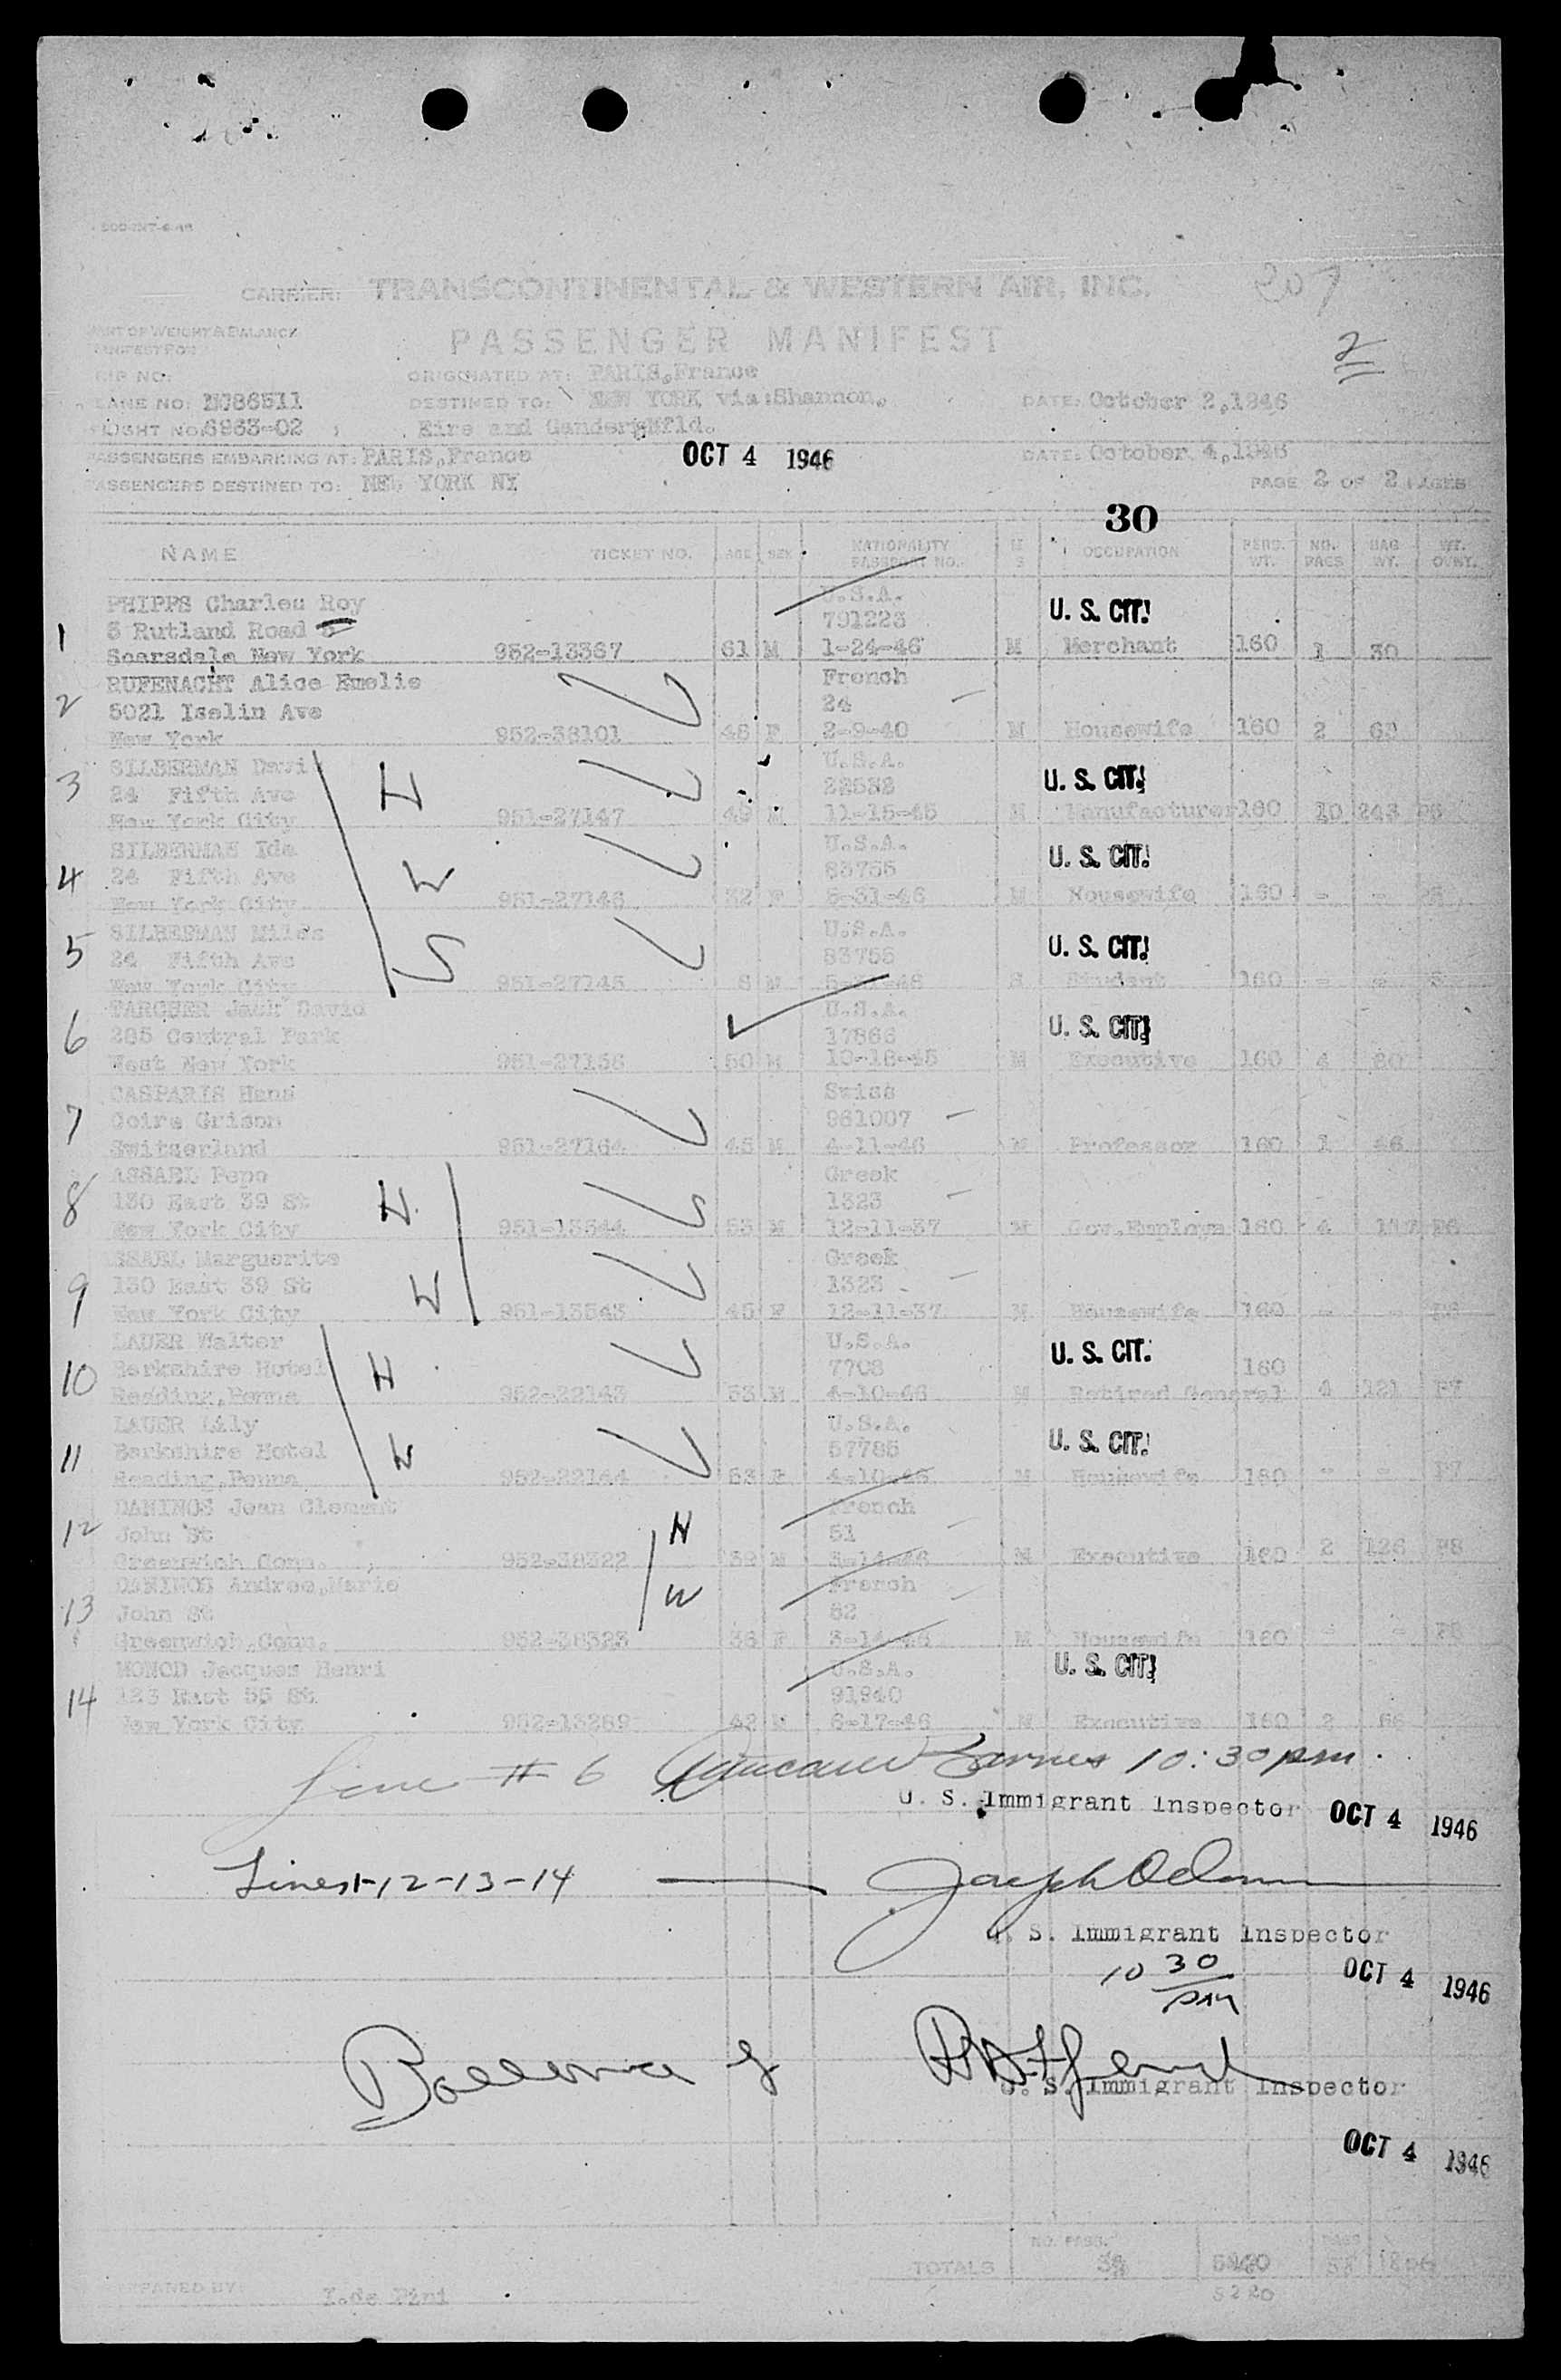 207
CARRIER: TRANSCONTINENTAL & WESTERN AIR, INC.
2
PART OF WEIGHT & BALANCE
MANIFEST FOR
PASSENGER MANIFEST
TRIP NO:
ORIGINATED AT: PARIS,France
PLANE NO: NC86511
DESTINED TO: NEW YORK via:Shannon,
DATE: October 2,1946
FLIGHT NO: 6963-02
Eire and Gander,Nfld.
PASSENGERS EMBARKING AT: PARIS,France
OCT 4 1946
DATE: October 4,1946
PASSENGERS DESTINED TO: NEW YORK NY
PAGE 2 OF 2 PAGES
30
NAME TICKET NO. AGE SEX NATIONALITY PASSPORT NO. M S OCCUPATION PERS. WT. NO. PACS BAG WT. WT. OVHT.
PHIPPS Charles Roy U.S.A.
3 Rutland Road 701223 U. S. CIT.
1 Scarsdale New York 952-13367 61 M 1-24-46 M Merchant 160 1 30
RUFENACHT Alice Emelie French
2 5021 Iselin Ave 24
New York 952-38101 46 F 2-9-40 M Housewife 160 2 60
SILBERMAN David U.S.A.
3 24 Fifth Ave H 22532 U. S. CIT.
New York City 951-27147 49 M 11-15-45 M Manufacturer 160 10 243 P5
SILBERMAN Ida U.S.A.
4 24 Fifth Ave W 83755 U. S. CIT.
New York City 951-27146 32 F 5-31-46 M Housewife 160 - - P5
SILBERMAN Miles U.S.A.
5 24 Fifth Ave S 83756 U. S. CIT.
New York City 951-27145 8 M 5-31-46 S Student 160 - -
TARCHER Jack David U.S.A.
6 285 Central Park 17866 U. S. CIT.
West New York 951-27156 50 M 10-18-45 M Executive 160 4 80
CASPARIS Hans Swiss
7 Coire Grison 961007
Switzerland 951-27164 45 M 4-11-46 M Professor 160 1 46
ASSAEL Pepo Greek
8 130 East 39 St H 1323
New York City 951-13544 53 M 12-11-37 M Gov.Employe 160 4 117 P6
ASSAEL Marguerite Greek
9 130 East 39 St W 1323
New York City 951-13543 45 F 12-11-37 M Housewife 160 - - P6
LAUER Walter U.S.A.
10 Berkshire Hotel H 7708 U. S. CIT.
Reading,Penna 952-22143 53 M 4-10-46 M Retired General 160 4 121 P7
LAUER Lily U.S.A.
11 Berkshire Hotel W 57785 U. S. CIT.
Reading,Penna 952-22144 53 F 4-10-46 M Housewife 160 - - P7
DANINOS Jean Clement French
12 John St H 51
Greenwich Conn. 952-38322 39 M 3-14-46 M Executive 160 2 126 P8
DANINOS Andree,Marie French
13 John St W 52
Greenwich,Conn. 952-38323 36 F 3-14-46 M Housewife 160 - - P8
MONOD Jacques Henri U.S.A. U. S. CIT.
14 123 East 55 St. 91940
New York City 952-13289 42 M 6-17-46 M Executive 160 2 66
Line # 6 10:30 pm.
U. S. Immigrant Inspector OCT 4 1946
Lines 1-12-13-14
U. S. Immigrant Inspector
10 30 pm
OCT 4 1946
U. S. Immigrant Inspector
OCT 4 1946
NO. PASS. PACS
TOTALS
5220
PREPARED BY: